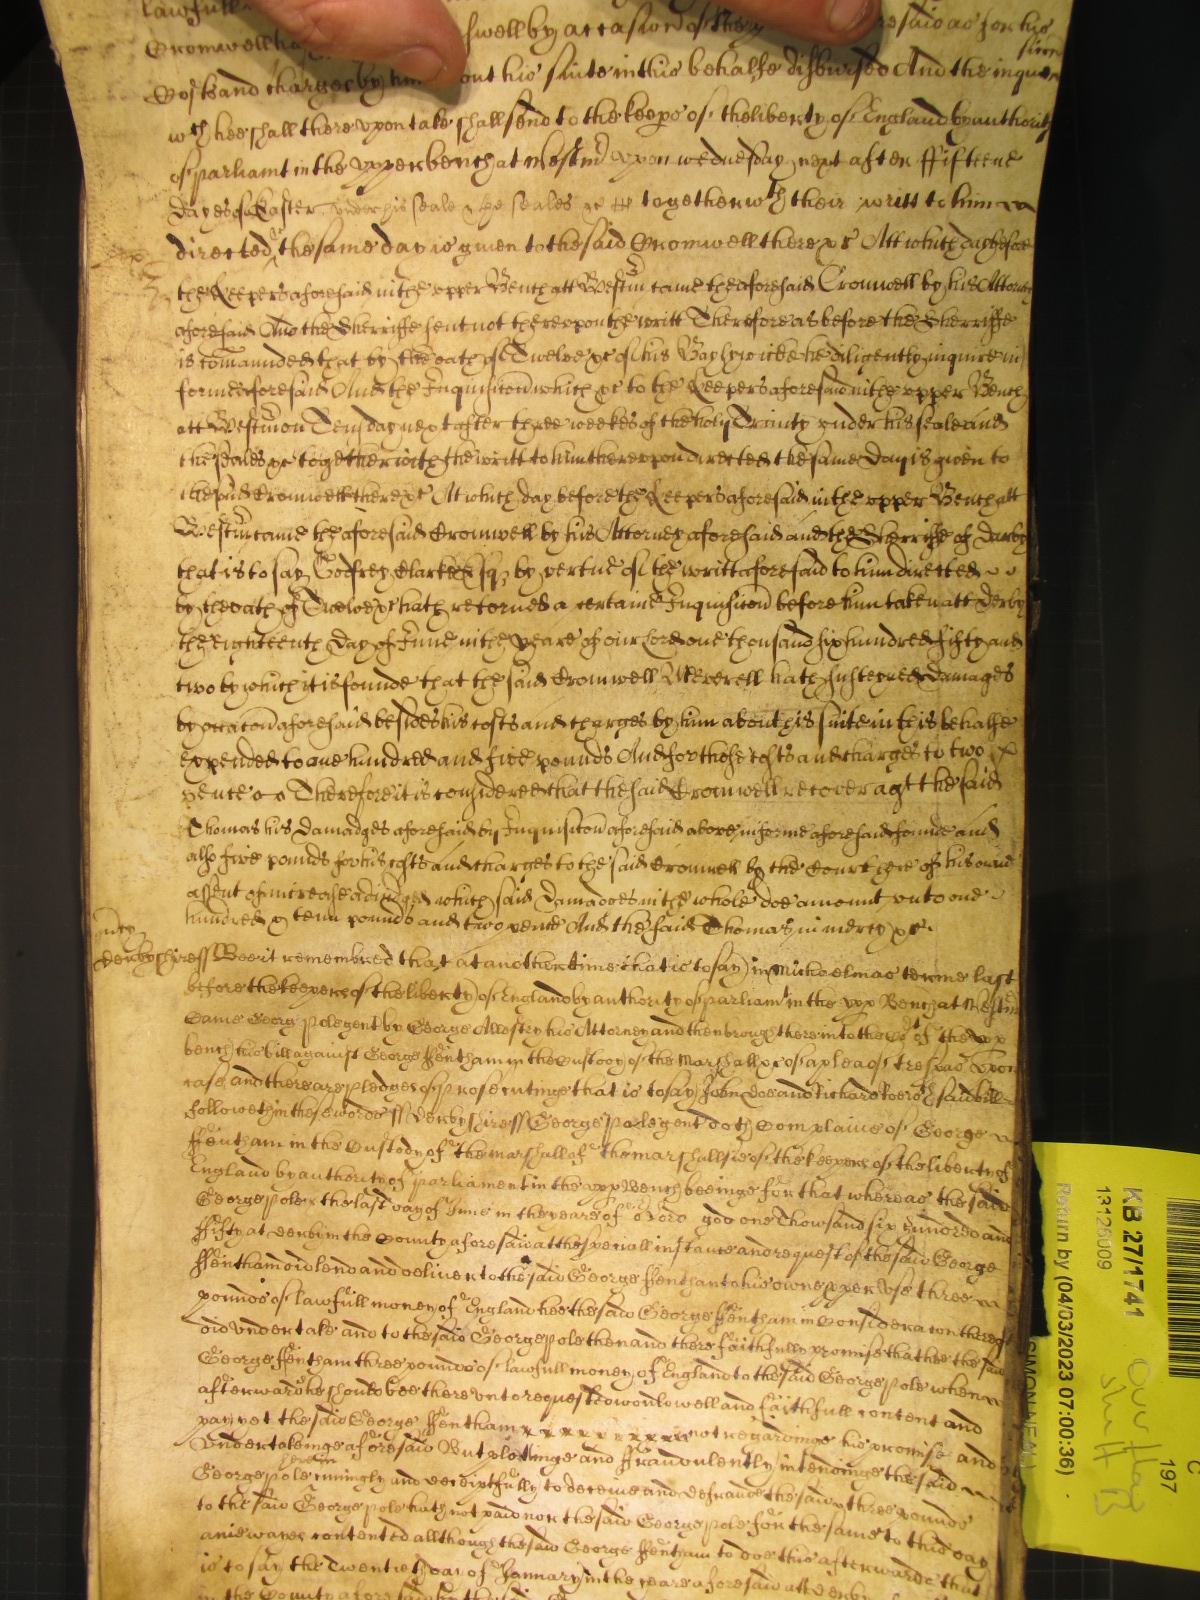 lawfull
Cromwell ha swell by occasion of they resaid as for his
Costs and charges by him out his suite in this behalfe disbursed And the inquisn
wch hee shall there upon take shall send to the keeps of the liberty of England by authority
of parliamt in the upper bench at Westmr upon wednesday next after ffifteene
dayes of Easter under his seale & the seales &c together wth their writt to him
directed, the same day is given to the said Cromwell there &c Att which day before
the Keepers aforesaid in the upper Bench att Westmr came the aforesaid Cromwell by his Attorny
aforesaid And the Sherriffe sent not thereupon the writt Therefore as before the Sherriffe
is comanded that by the oath of Twelve &c of his Baylywicke he diligently inquire in
forme aforesaid And the Inquisicon which &c to the Keepers aforesaid in the upper Bench
att Westm on Tensday next after three weekes of the holy Trinity under his seale and
the seales &c together with the writt to him thereupon directed the same day is given to
the said Cromwell there &c At which day before the Keepers aforesaid in the upper Bench att
Westmr came the aforesaid Cromwell by his Attorney aforesaid and the Sherriffe of Darby
that is to say Godfrey Clarke Esq by vertue of the writt aforesaid to him directed
by the oath of Twelve &c hath retorned a certaine Inquisicon before him taken att Derby
the eighteenth day of June in the yeare of our Lord one thousand six hundred fifty and
two by which it is founde that the said Cromwell Meverell hath susteyned damages
by occacon aforesaid besides his costs and charges by him about his suite in this behalfe
expended to one hundred and five pounds And for those costs and charges to two
pence Therefore it is considered that the said Cromwell recover agt the said
Thomas his damadges aforesaid by Inquisicon aforesaid above in forme aforesaid founde and
also five pounds for his costs and charges to the said Cromwell by the Court here of his owne
assent of increase adiudged which said damages in the whole doe amount unto one
hundred & tenn pounds and two pence And the said Thomas in mercy &c.
Derbyshire ss Bee it remembred that at another time that is to say in Michaelmas terme last
before the keepers of the liberty of England by authority of parliamt in the upp Bench at Westmr
Came George Pole gent by George Allestry his Attorney and then brought here into the Cort of the upp
bench his bill against George ffentham in the Custody of the Marshall &c of a plea of trespas upon
case, and there are pledges of prosecutinge that is to say John Doe and Richard Roe wch said bill
followeth in these words ss Derbyshire ss George Pole gent doth Complaine of George
ffentham in the Custody of the marshall of the marshallsie of the keepers of the liberty of
England by authority of parliament in the upp Bench beeinge for that whereas the said
George Pole the last day of June in the yeare of or Lord god one Thowsand six hundred and
ffifty at derby in the County aforesaid at the speciall instance and request of the said George
ffentham did lend and deliver to the said George ffentham to his owne pper use three
pounds of lawfull money of England hee the said George ffentham in Consideracon thereof
did undertake and to the said George Pole then and there faithfully promise that hee the said
George ffentham three pounds of lawfull money of England to the said George Pole when
afterwards he should bee thereunto requested would well and faithfull content and
pay, yet the said George ffentham not regardinge his promise and
undertakeinge aforesaid But plottinge and fraudulently intendinge the said
George Pole herein cuningly and deceiptfully to deceive and defraude the said three pounds
to the said George Pole hath not paid nor the said George Pole for the same to this day
anie waies contented allthough the said George ffentham to doe this afterwards that
is to say the Twentieth day of January in the yeare aforesaid att derby
in the County aforesaid by the said
KB 27/1741
13126009
Return by (04/03/2023 07:00:36)
SIMON NEAL
C
197